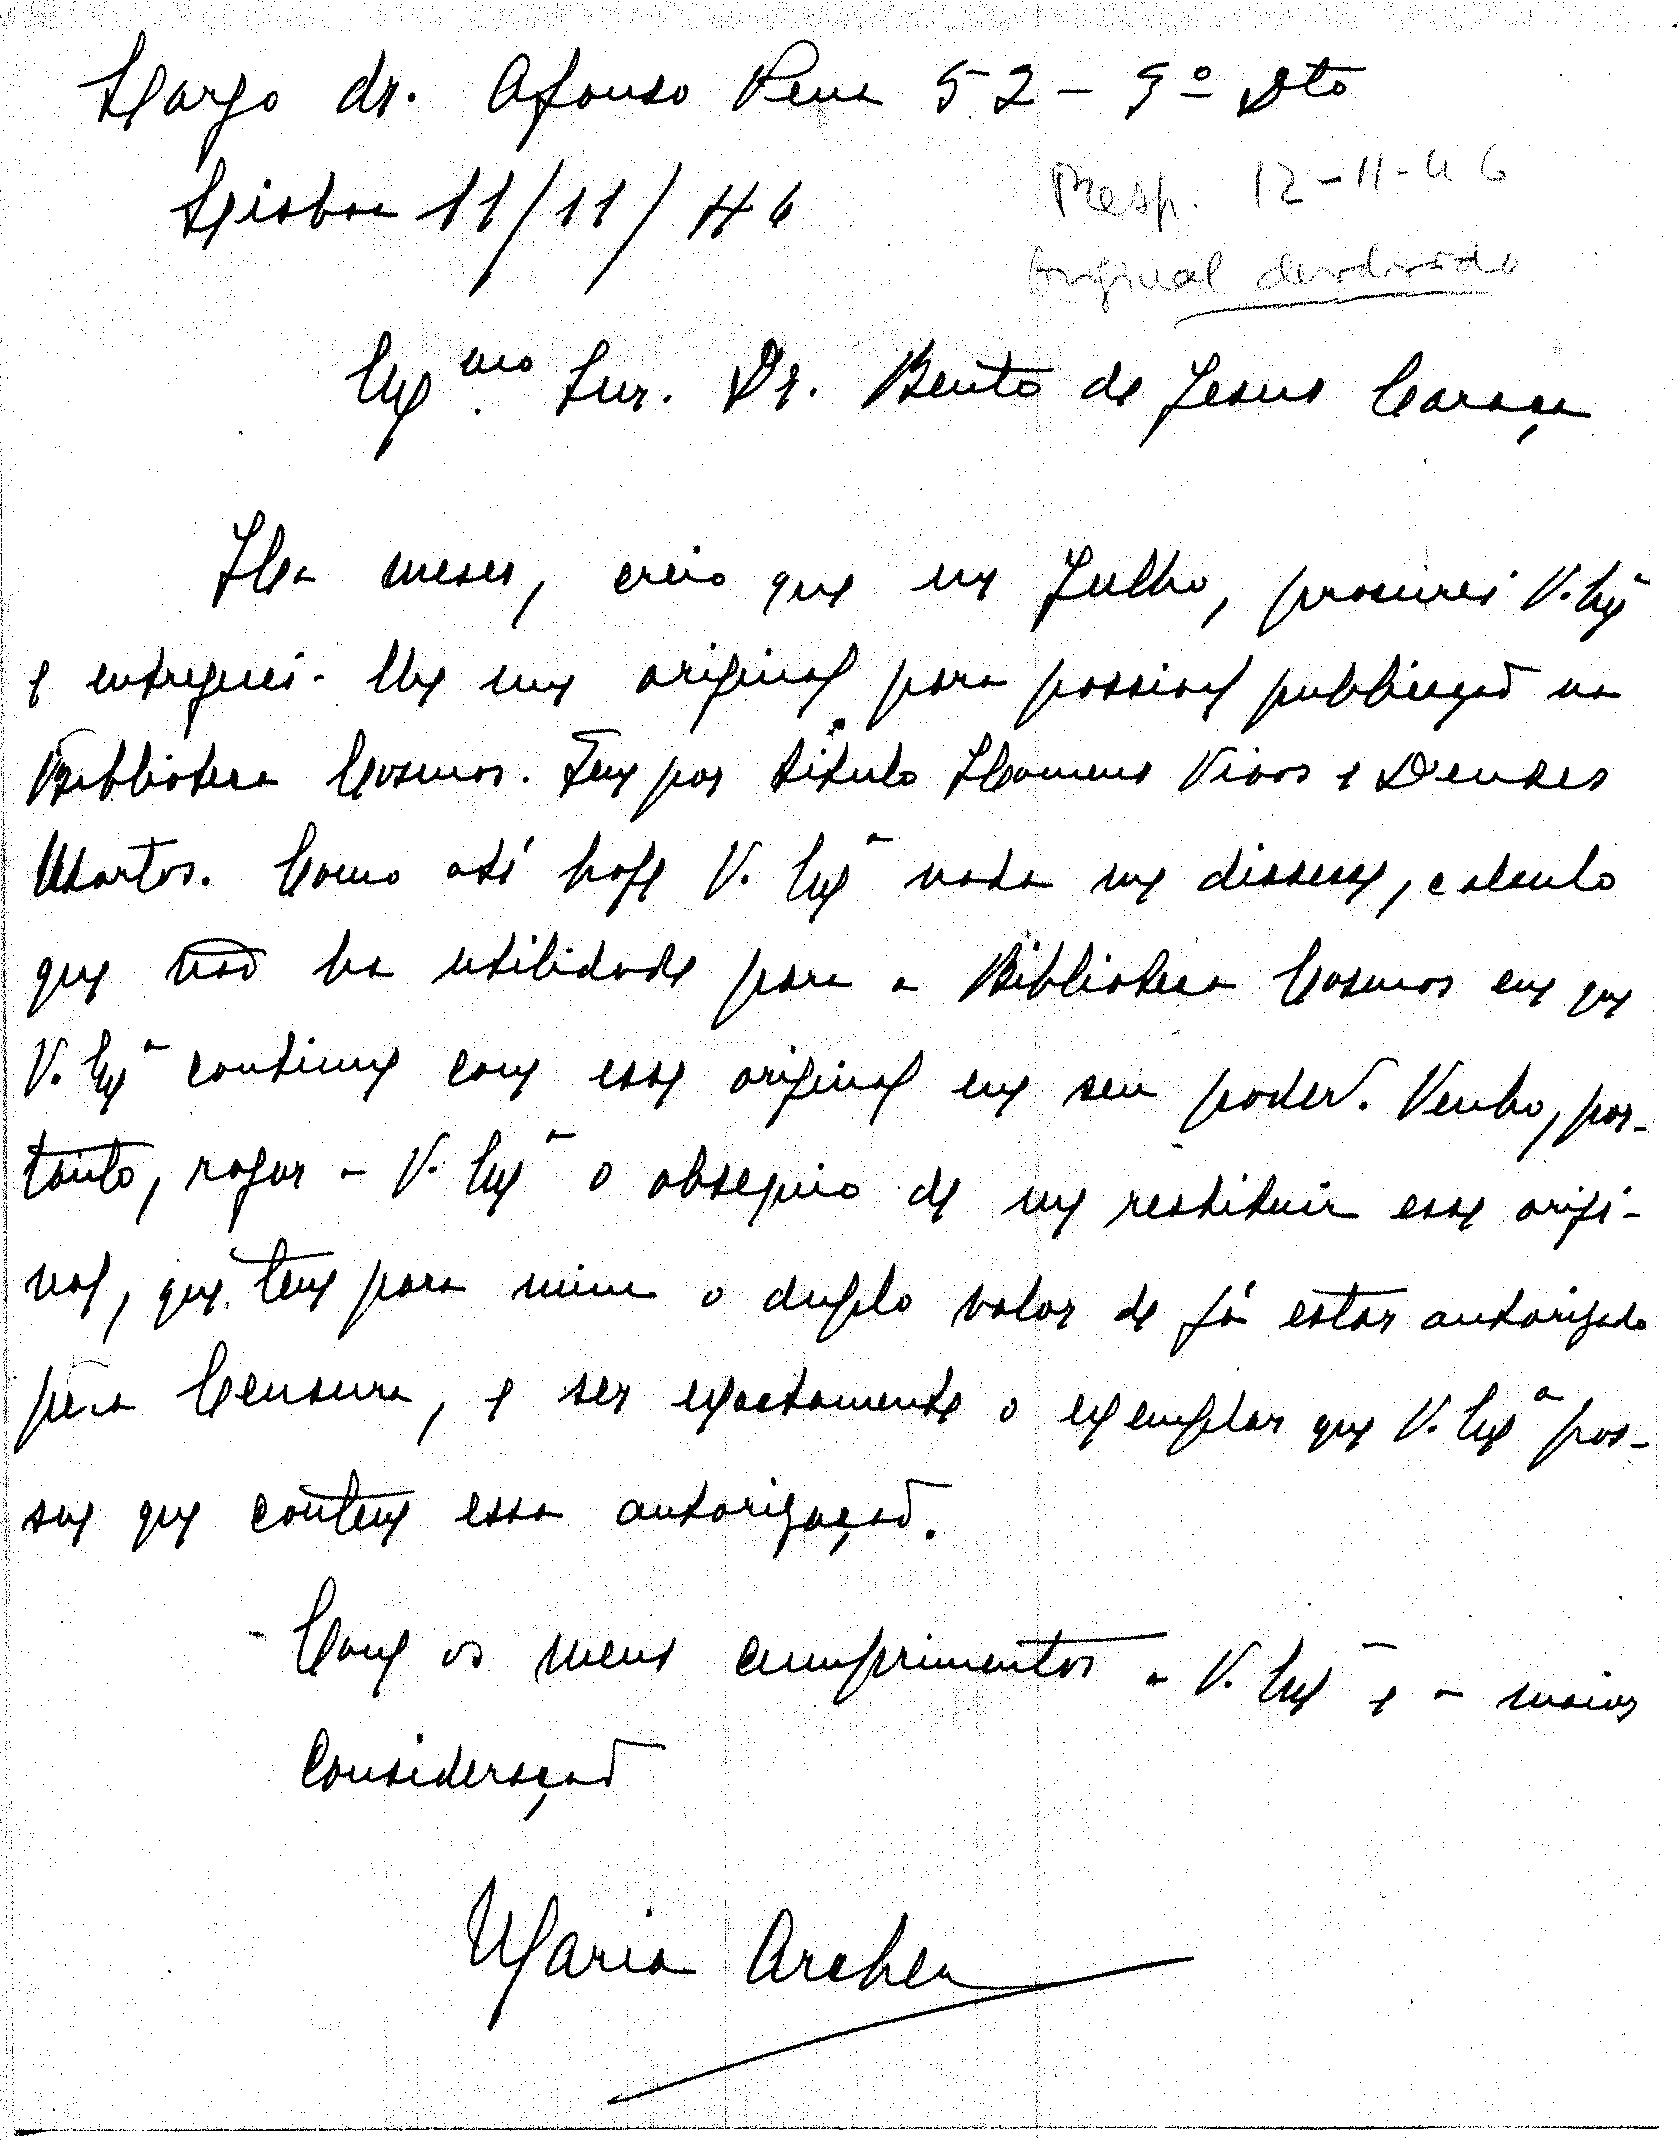 Largo dr. Afonso Pena 52 - 5º Dto
Lisboa 11/11/46
Resp. 12-11-46
Original devolvido
Exmo Snr. Dr. Bento de Jesus Caraça
Ha meses, creio que em Julho, procurei V. Exª
e entreguei-lhe um original para possivel publicação na
Biblioteca Cosmos. Tem por titulo Homens Vivos e Deuses
Mortos. Como até hoje V. Exª nada me dissesse, calculo
que não ha utilidade para a Biblioteca Cosmos em que
V. Exª continue com esse original em seu poder. Venho, por-
tanto, rogar a V. Exª o obsequio de me restituir esse origi-
nal, que tem para mim o duplo valor de já estar autorizado
pela Censura, e ser exactamente o exemplar que V. Exª pos-
sue que contem essa autorização.
Com os meus cumprimentos a V. Exª e a maior
Consideração
Maria Archer